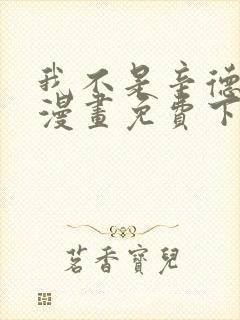 我不是辛德
漫畫免費下
茗香寶兒